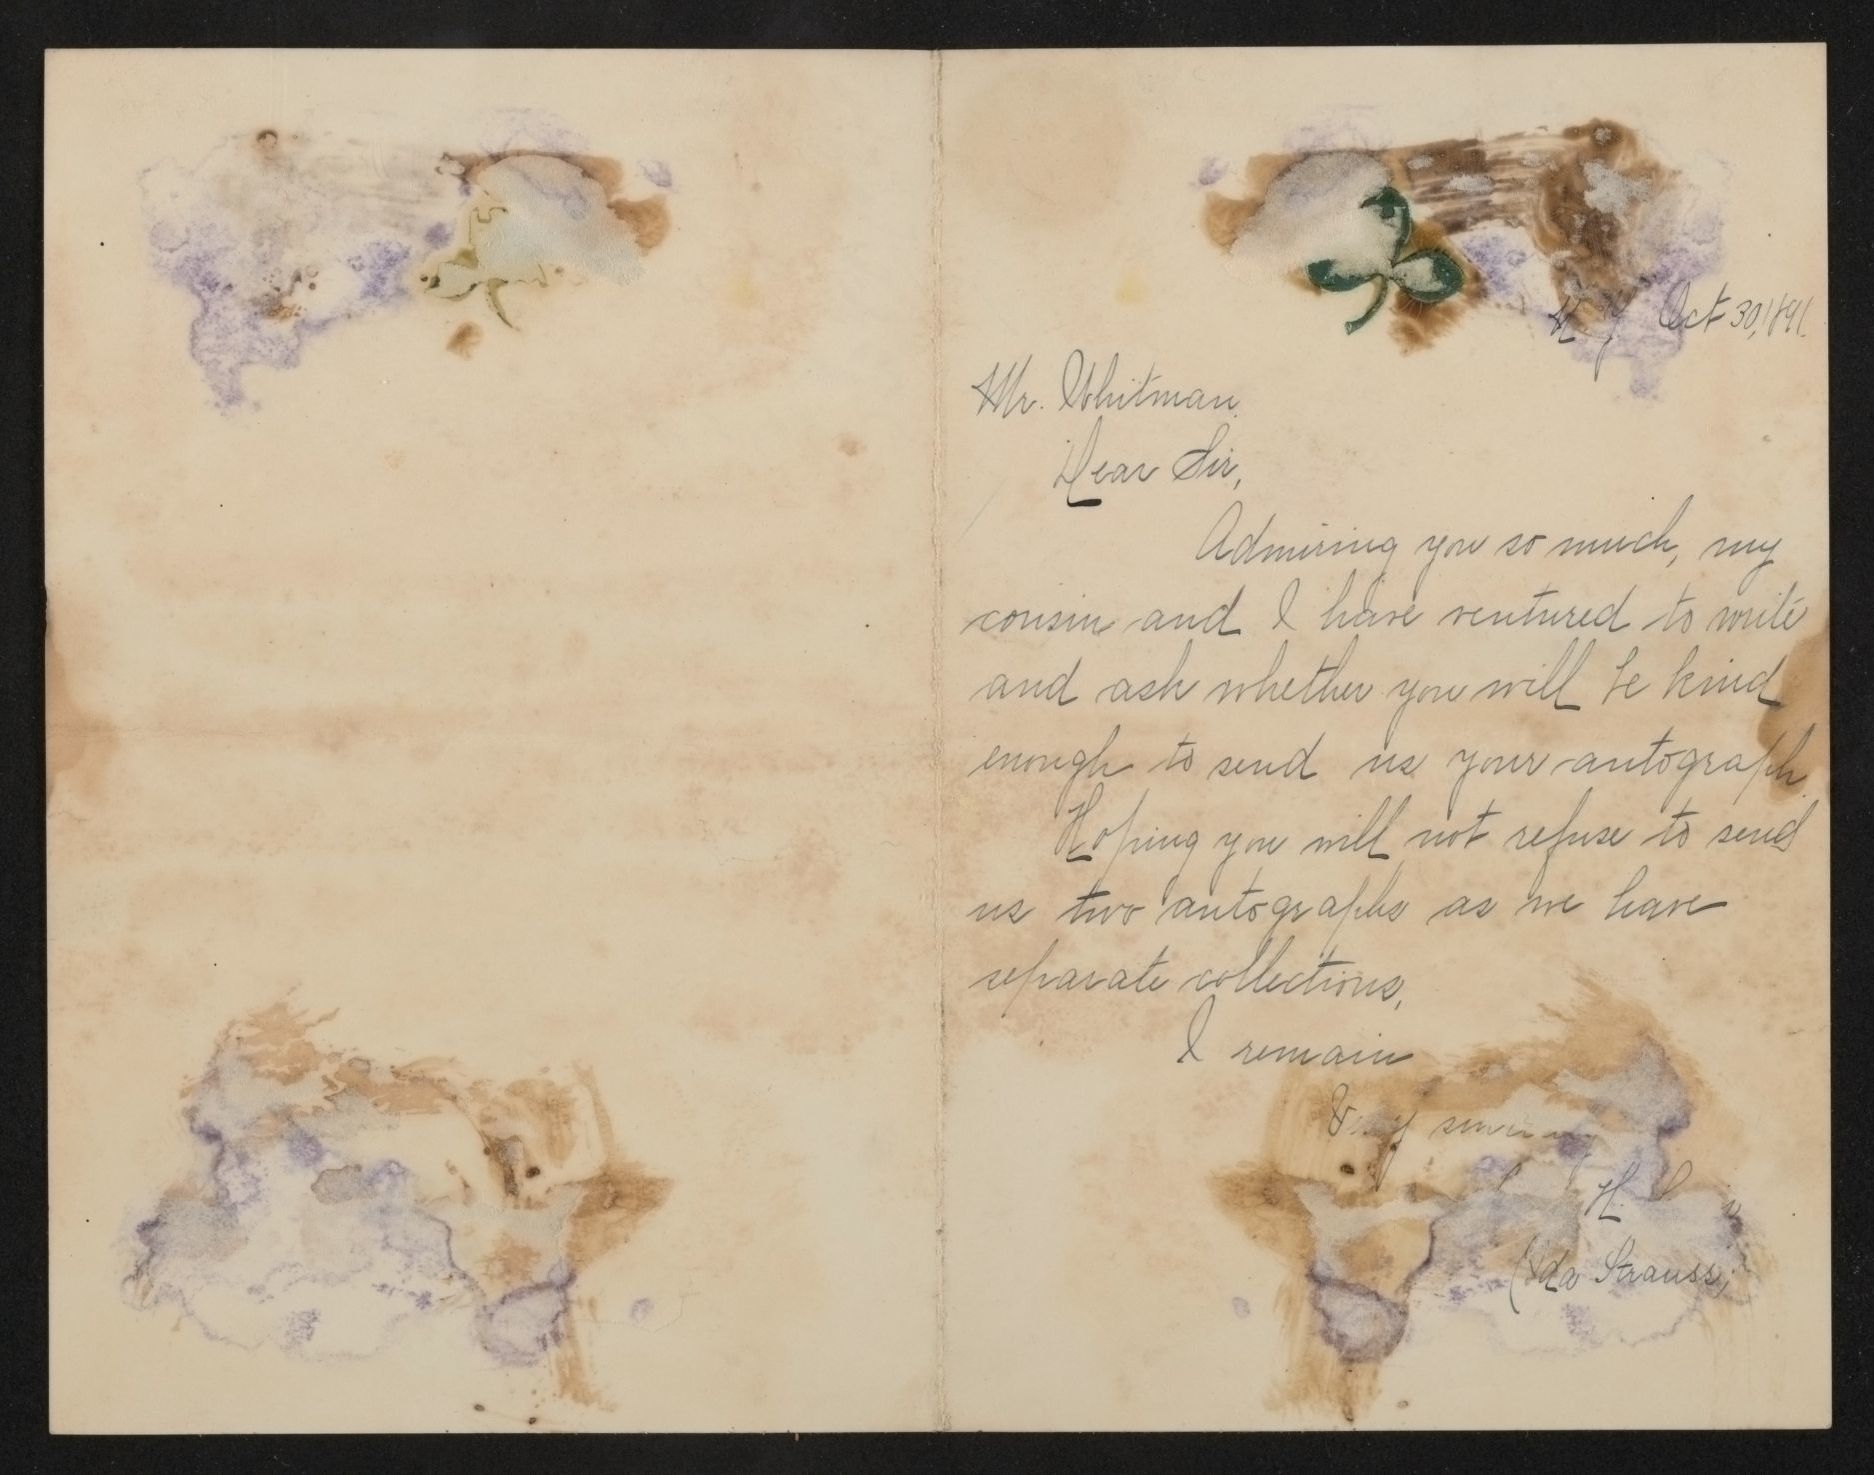 N. Y. Oct 30, 1891.
Mr. Whitman.
Dear Sir,
Admiring you so much, my
cousin and I have ventured to write
and ask whether you will be kind
enough to send us your autograph.
Hoping you will not refuse to send
us two autographs as we have
separate collections,
I remain
Very
H.
(Ida Strauss)